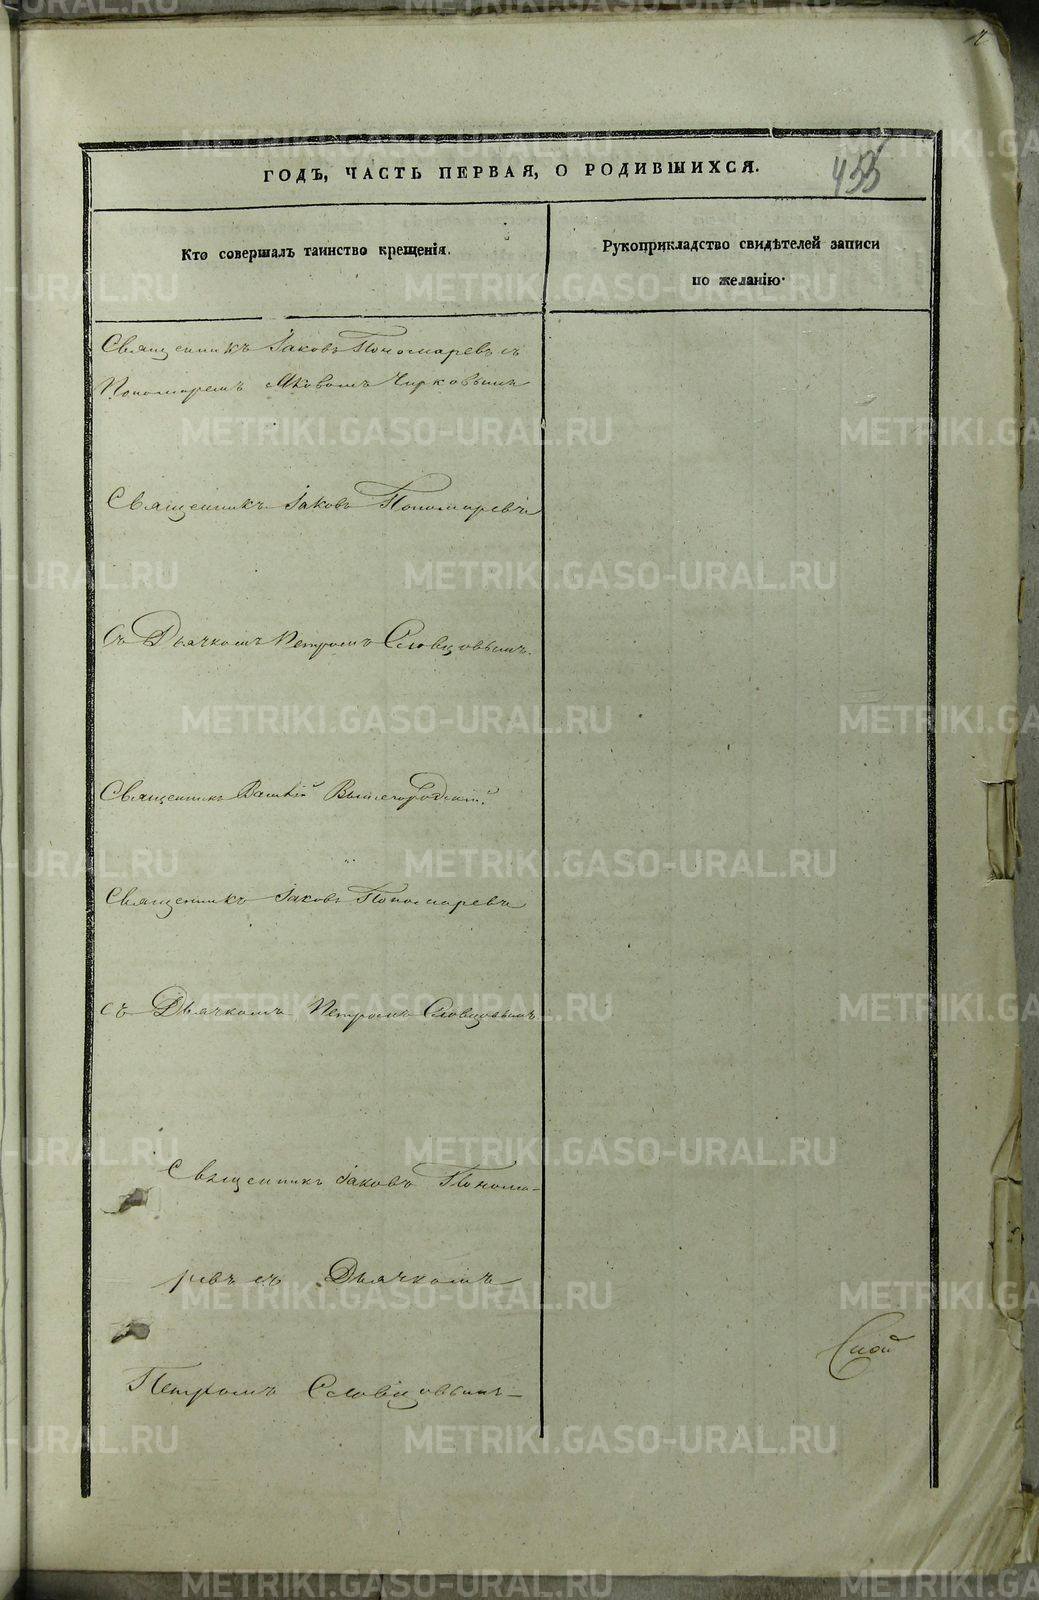 455
ГОДЪ, ЧАСТЬ ПЕРВАЯ, О РОДИВШИХСЯ.
Кто совершалъ таинство крещенія.
Рукоприкладство свидѣтелей записи
по желанію.
Священникъ Іаковъ Пономаревъ съ
Пономаремъ Чирковымъ
Священникъ Іаковъ Пономаревъ
Съ Дьячкомъ Петромъ Словцовымъ.
Священникъ Василій Вышегородскій.
Священникъ Іаковъ Пономаревъ
съ Дьячкомъ Петромъ Словцовымъ
Священникъ Іаковъ Понома-
ревъ съ Дьячкомъ
Петромъ Словцовымъ
METRIKI.GASO-URAL.RU